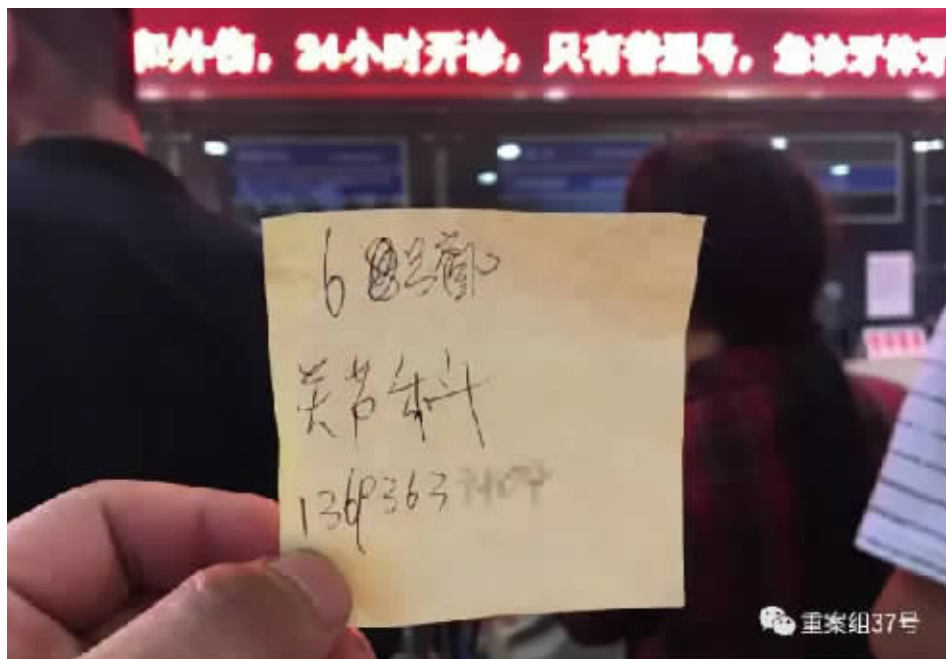 和外伤，24小时开诊，只有普通号，急诊牙体牙
6
关节科
1369363
重案组37号